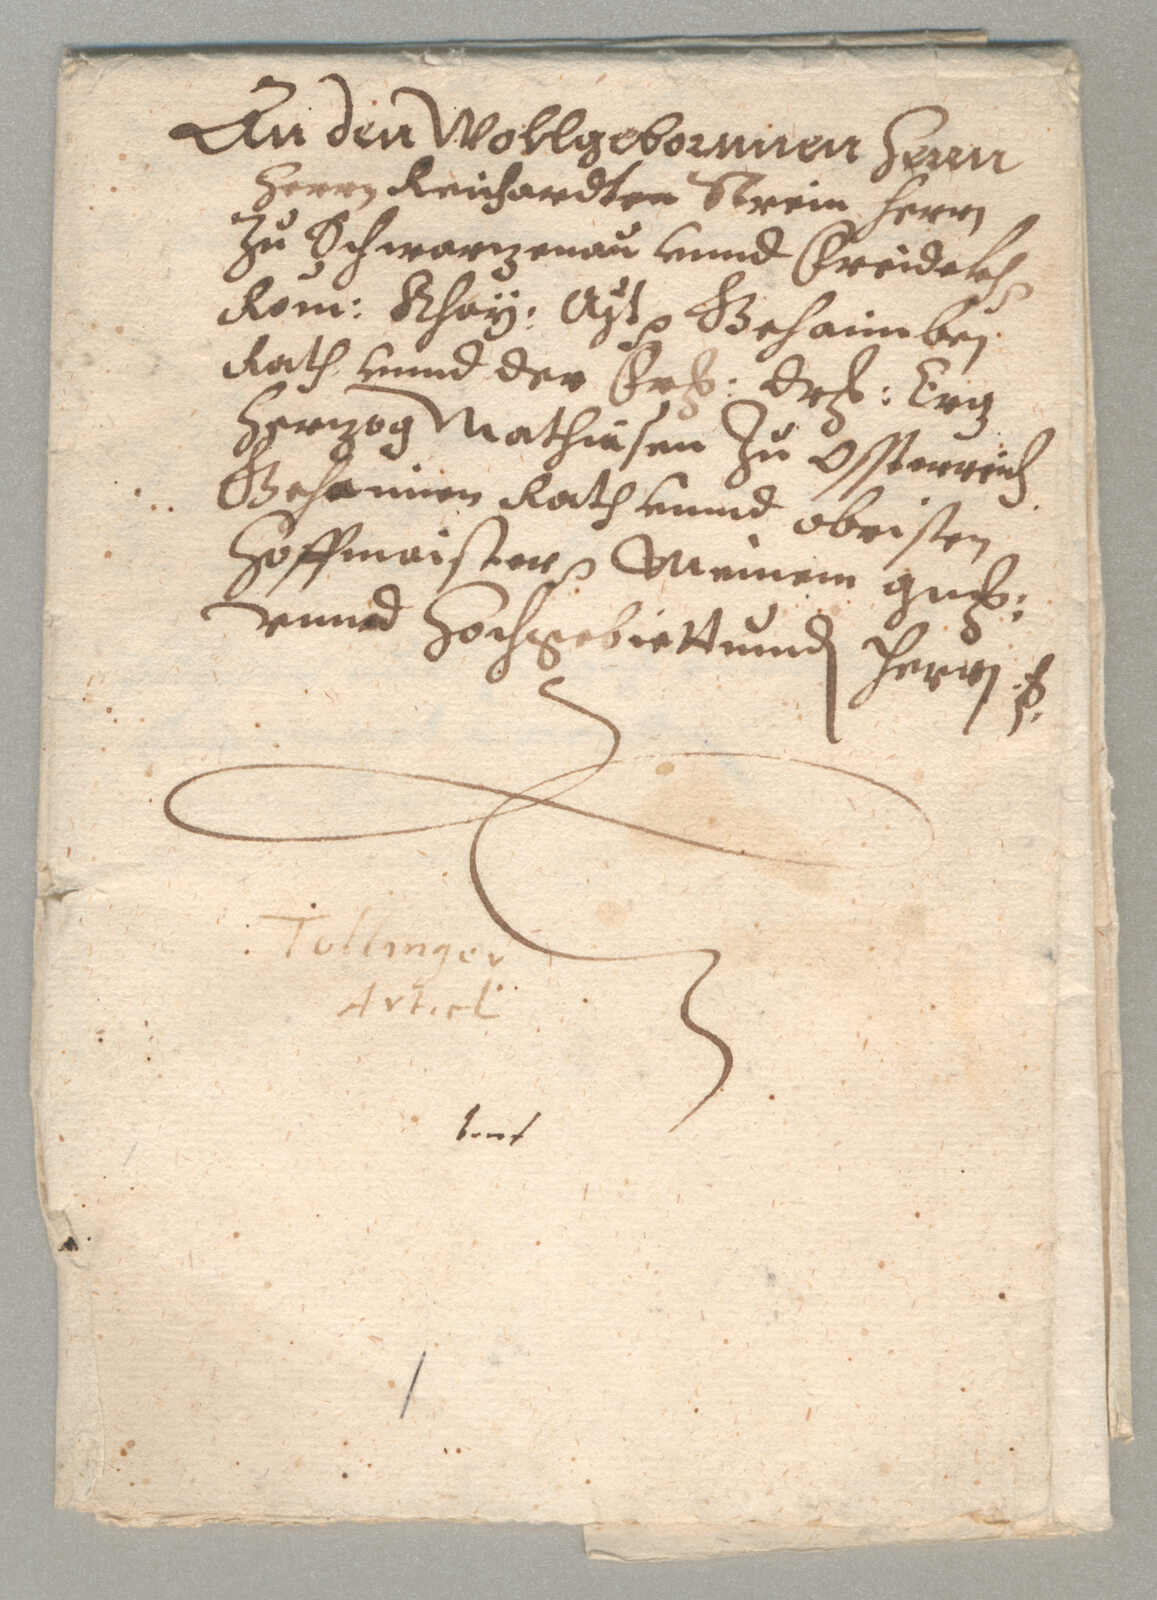 An den Wollgebornnen Herrn
Herrn Reichardten Strein Herrn
Zu Schwarzenau vnnd
Rom: Khay: Mt: Gehaimben
Rath vnnd der Frl: Drl: Erz
Herzog Mathiasen Zu Össterreich
Gehaimen Rath vnnd obristen
Hoffmaister Meinem gned:
vnnd Hochgebiettund Herrn
Tollinger
Articl